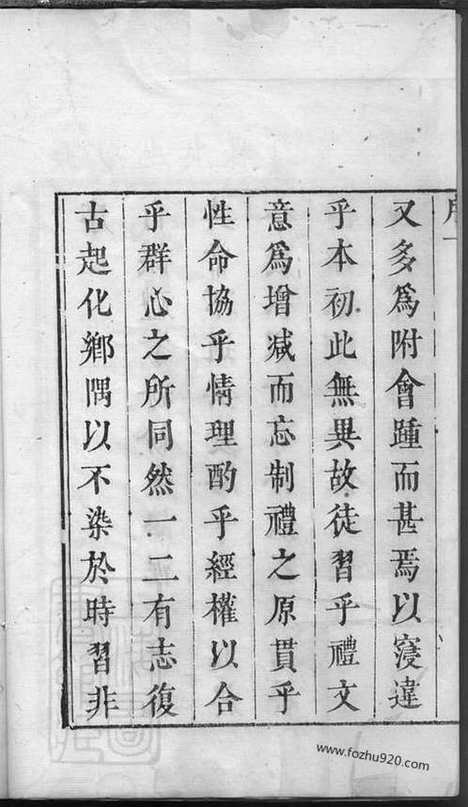 又多爲附會踵而甚焉以寖違
乎本初此無異故徒習乎禮文
意爲增减而忘制禮之原貫乎
性命協乎情理酌乎經權以合
乎群心之所同然一二有志復
古起化鄉隅以不染於時習非
www.fozhu920.com